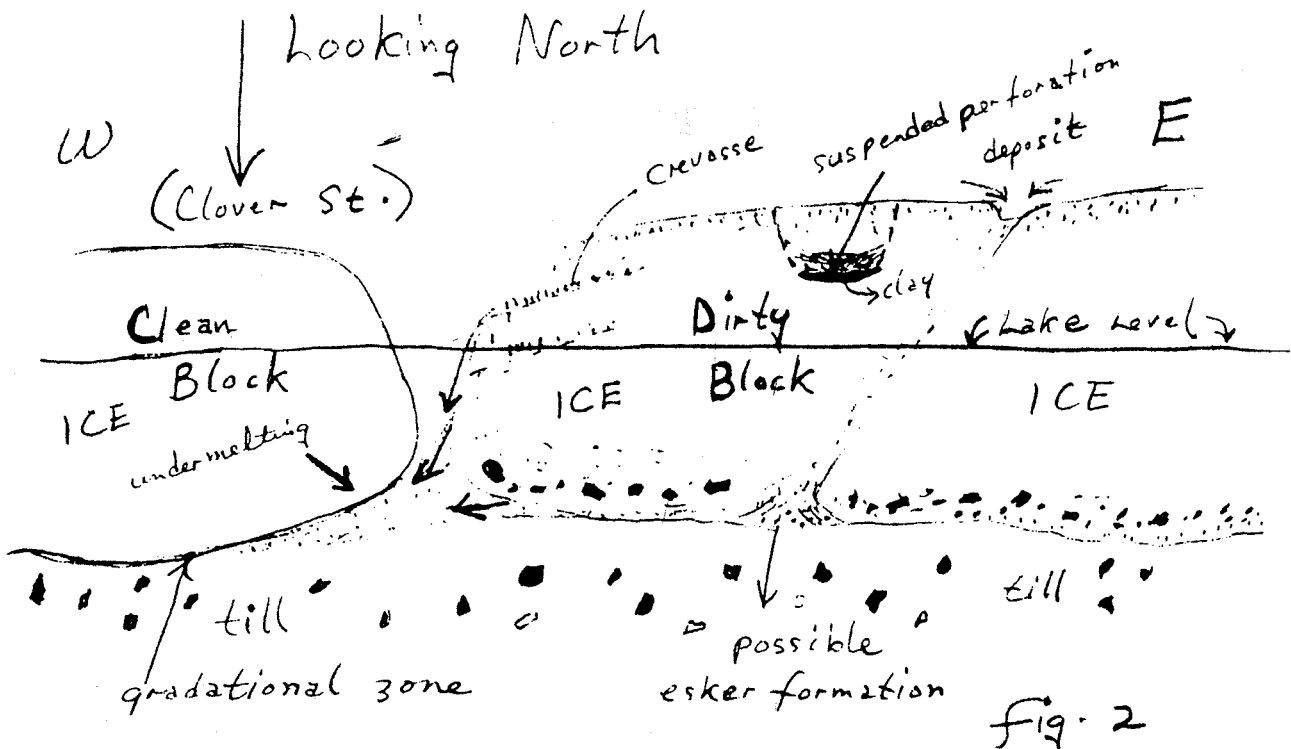 Looking North
W
E
(Clover St.)
crevasse
suspended perforation
deposit
clay
Clean
Block
ICE
undermelting
Dirty
Block
ICE
Lake Level
ICE
till
till
gradational zone
possible
esker formation
fig. 2